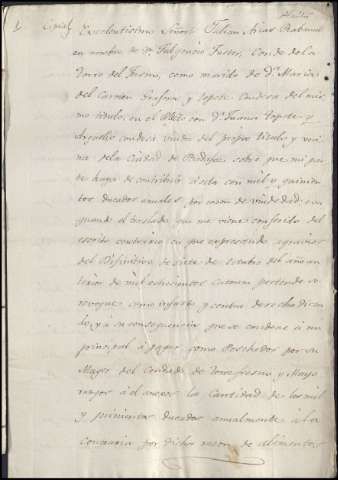 Excelentisimo Señor: Julian
en nombre de Dn Fulgencio Fuster, Conde de la
Torre del Fresno, como marido de Da Maria
del Carmen y Topete Condesa del mis
mo titulo, en el Pleito con Da Juana Topete y
Arguello condesa viuda del propio titulo y veci
na de la Ciudad de Badajoz sobre que mi par
te haya de contribuir á esta con mil y quinien
tos ducados anuales por razon de viudedad: eva
quando el traslado que me viene conferido del
escrito contrario en que expresando agravios
del Difinitivo de siete de octubre del año an
terior de mil ochocientos catorce pretende se
revoque como injusto y contra derecho dicien
do, y á su consequencia que se condene á mi
principal á pagar como Poseedor por su
Muger del Condado de Torrefresno y Mayo
razgos á el anexos la Cantidad de los mil
y quinientos ducados anualmente á la
Contraria por dicha razon de alimentos